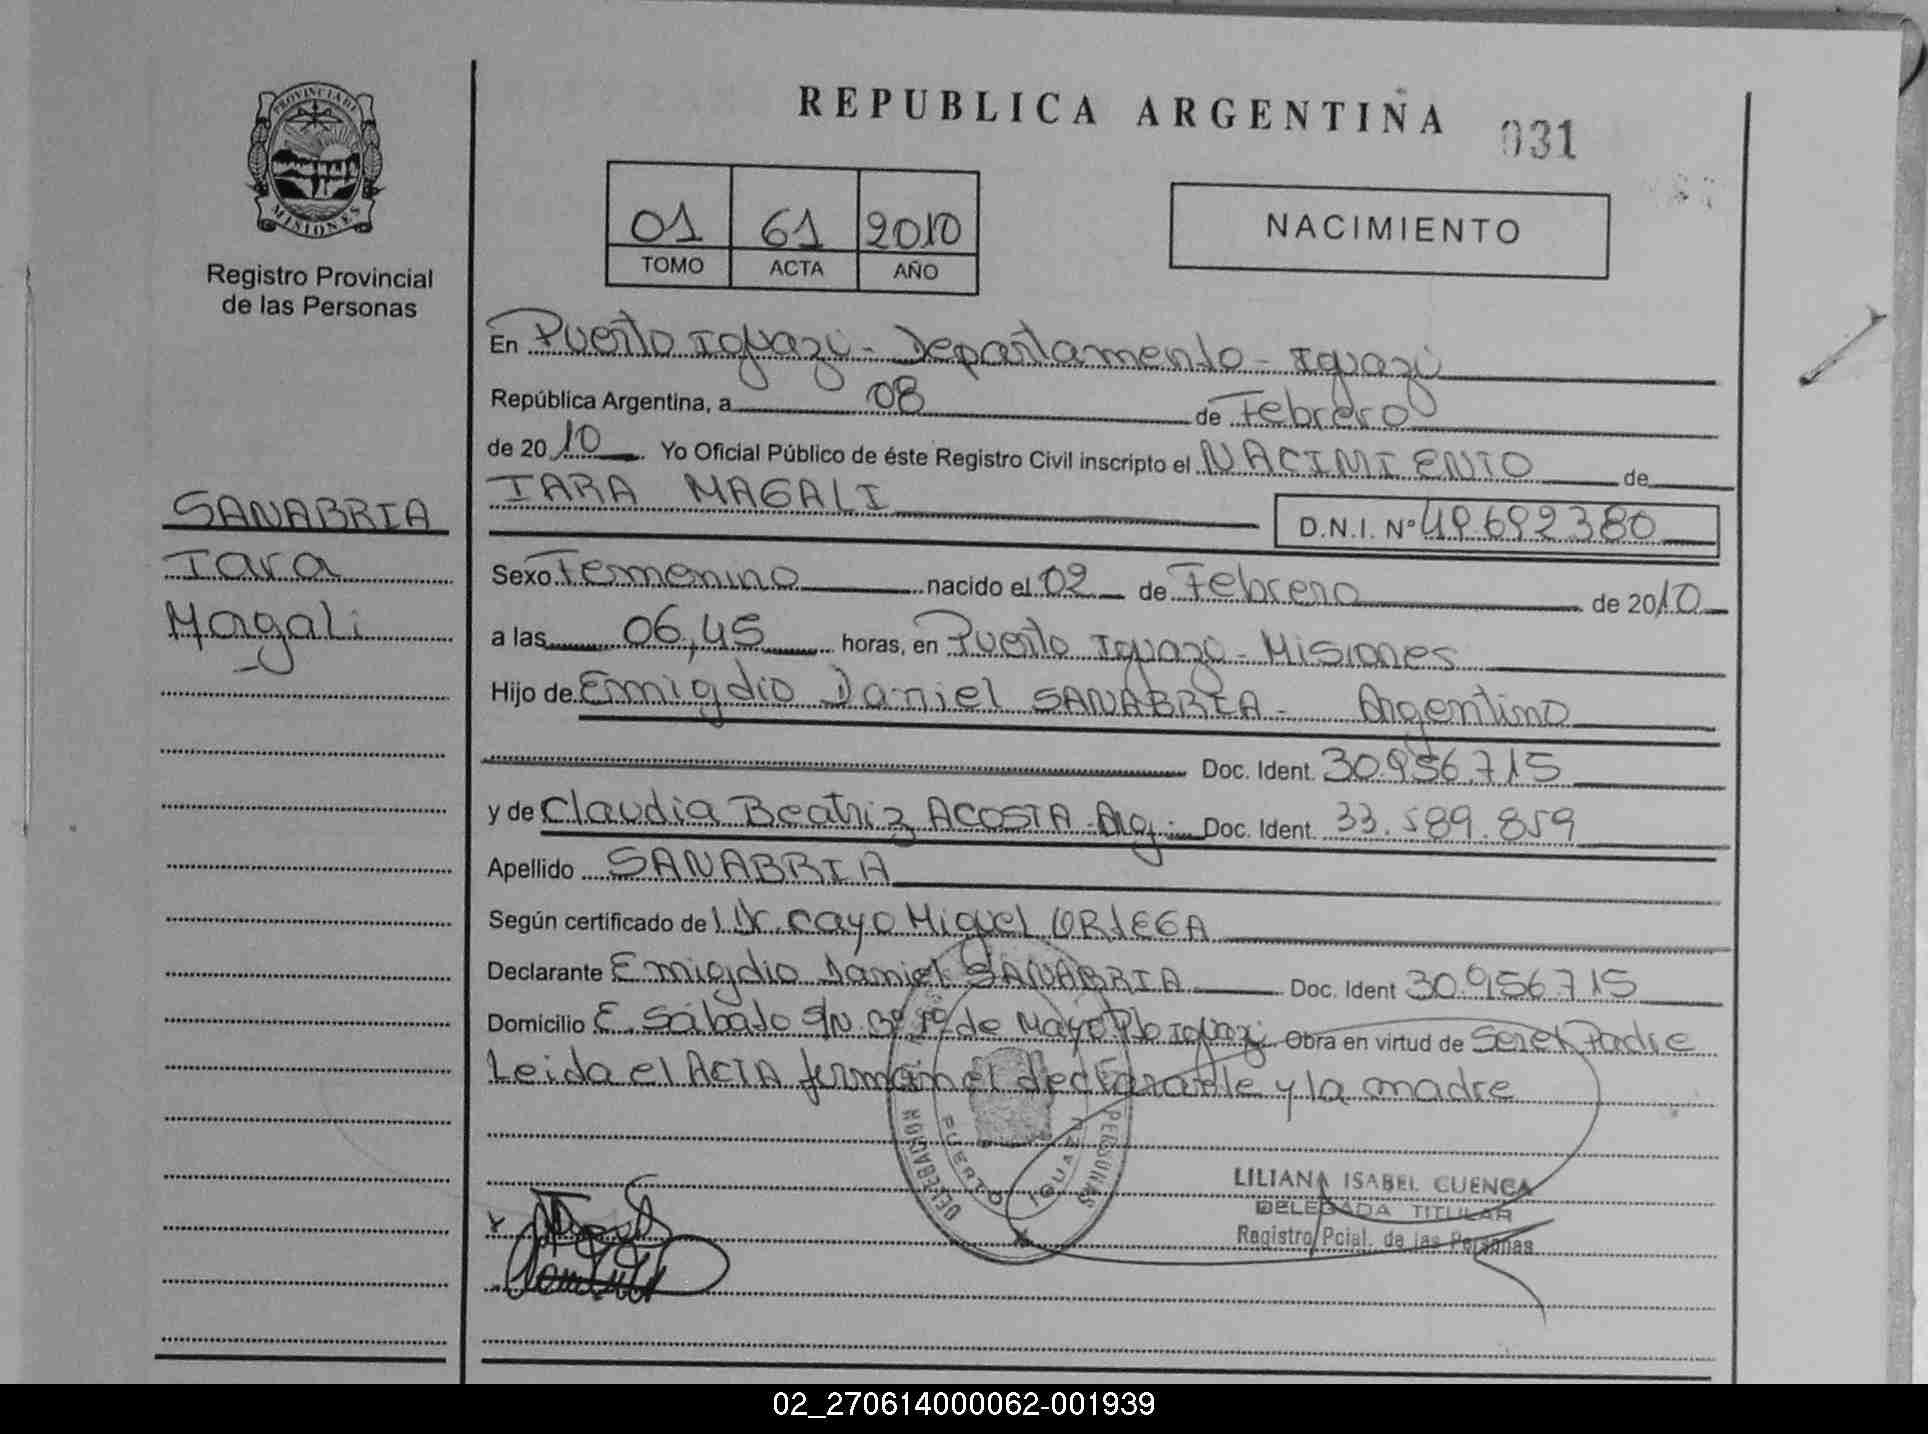 PROVINCIA DE
MISIONES
Registro Provincial
de las Personas
SANABRIA
Iara
Magali
REPUBLICA ARGENTINA
031
01 61 2010
TOMO ACTA AÑO
NACIMIENTO
En Puerto Iguazú - Departamento - Iguazú
República Argentina, a 08 de Febrero
de 2010. Yo Oficial Público de éste Registro Civil inscripto el NACIMIENTO de
IARA MAGALI
D.N.I. Nº 49.692.380
Sexo Femenino nacido el 02 de Febrero de 2010
a las 06,45 horas, en Puerto Iguazú - Misiones
Hijo de Emigdio Daniel SANABRIA - Argentino
Doc. Ident. 30.956.715
y de Claudia Beatriz ACOSTA - Arg. Doc. Ident. 33.589.859
Apellido SANABRIA
Según certificado de Dr. Cayo Miguel ORTEGA
Declarante Emigdio Daniel SANABRIA Doc. Ident 30.956.715
Domicilio E. Sábato S/N Bº 1º de Mayo Pto Iguazú Obra en virtud de Ser el Padre
Leida el ACTA firman el declarante y la madre
PERSONAS
PUERTO IGUAZU
LILIANA ISABEL CUENCA
DELEGADA TITULAR
Registro Pcial. de las Personas
02_270614000062-001939